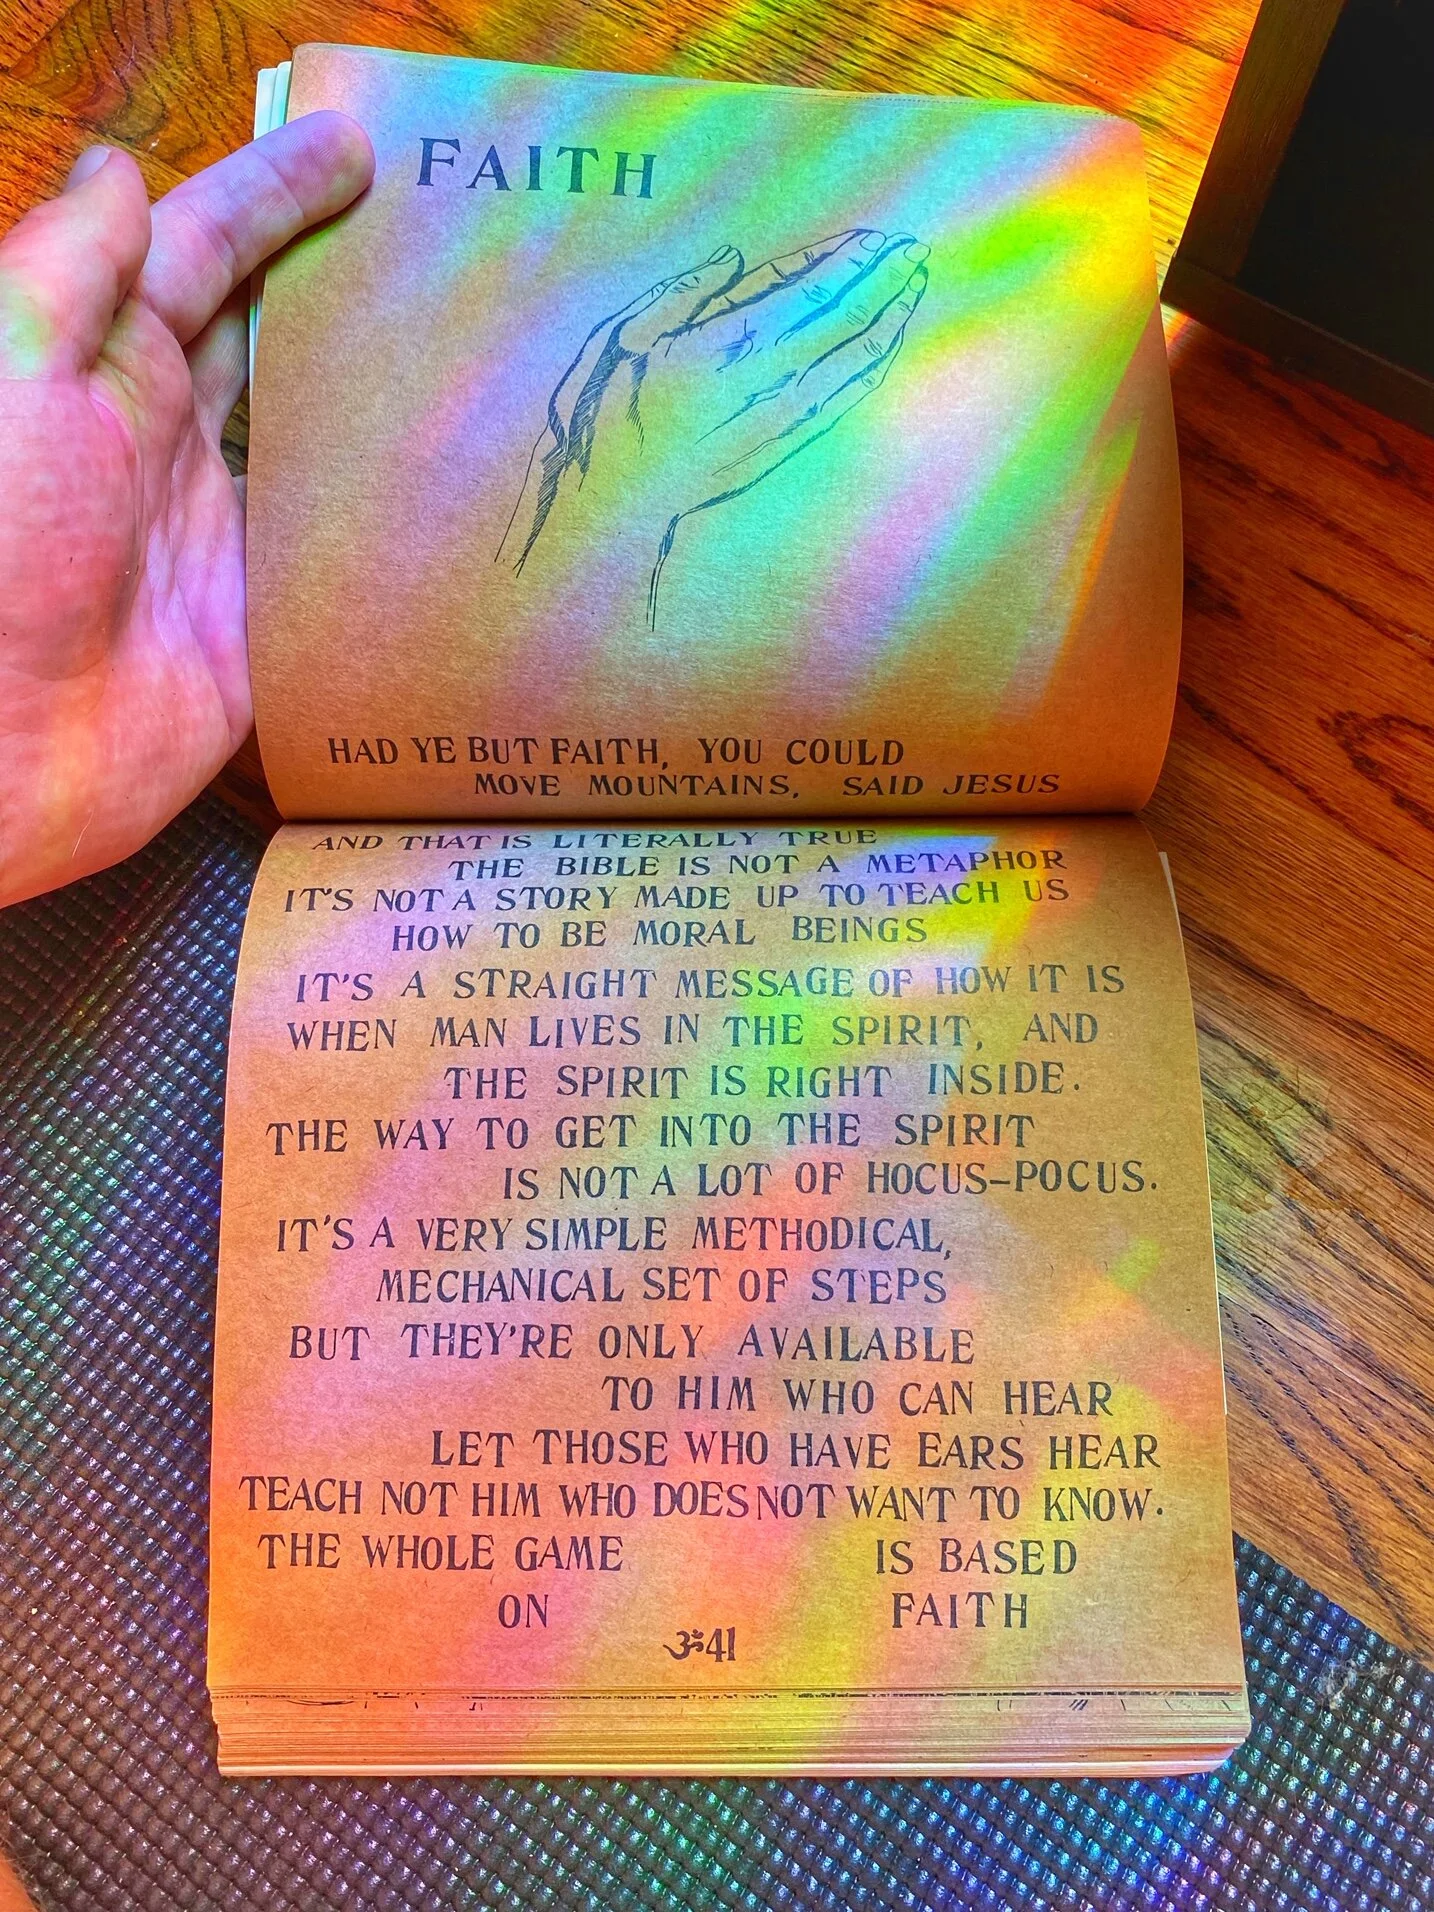 FAITH
HAD YE BUT FAITH, YOU COULD
MOVE MOUNTAINS, SAID JESUS
AND THAT IS LITERALLY TRUE
THE BIBLE IS NOT A METAPHOR
IT'S NOT A STORY MADE UP TO TEACH US
HOW TO BE MORAL BEINGS
IT'S A STRAIGHT MESSAGE OF HOW IT IS
WHEN MAN LIVES IN THE SPIRIT, AND
THE SPIRIT IS RIGHT INSIDE.
THE WAY TO GET INTO THE SPIRIT
IS NOT A LOT OF HOCUS-POCUS.
IT'S A VERY SIMPLE METHODICAL,
MECHANICAL SET OF STEPS
BUT THEY'RE ONLY AVAILABLE
TO HIM WHO CAN HEAR
LET THOSE WHO HAVE EARS HEAR
TEACH NOT HIM WHO DOES NOT WANT TO KNOW.
THE WHOLE GAME IS BASED
ON FAITH
ॐ41